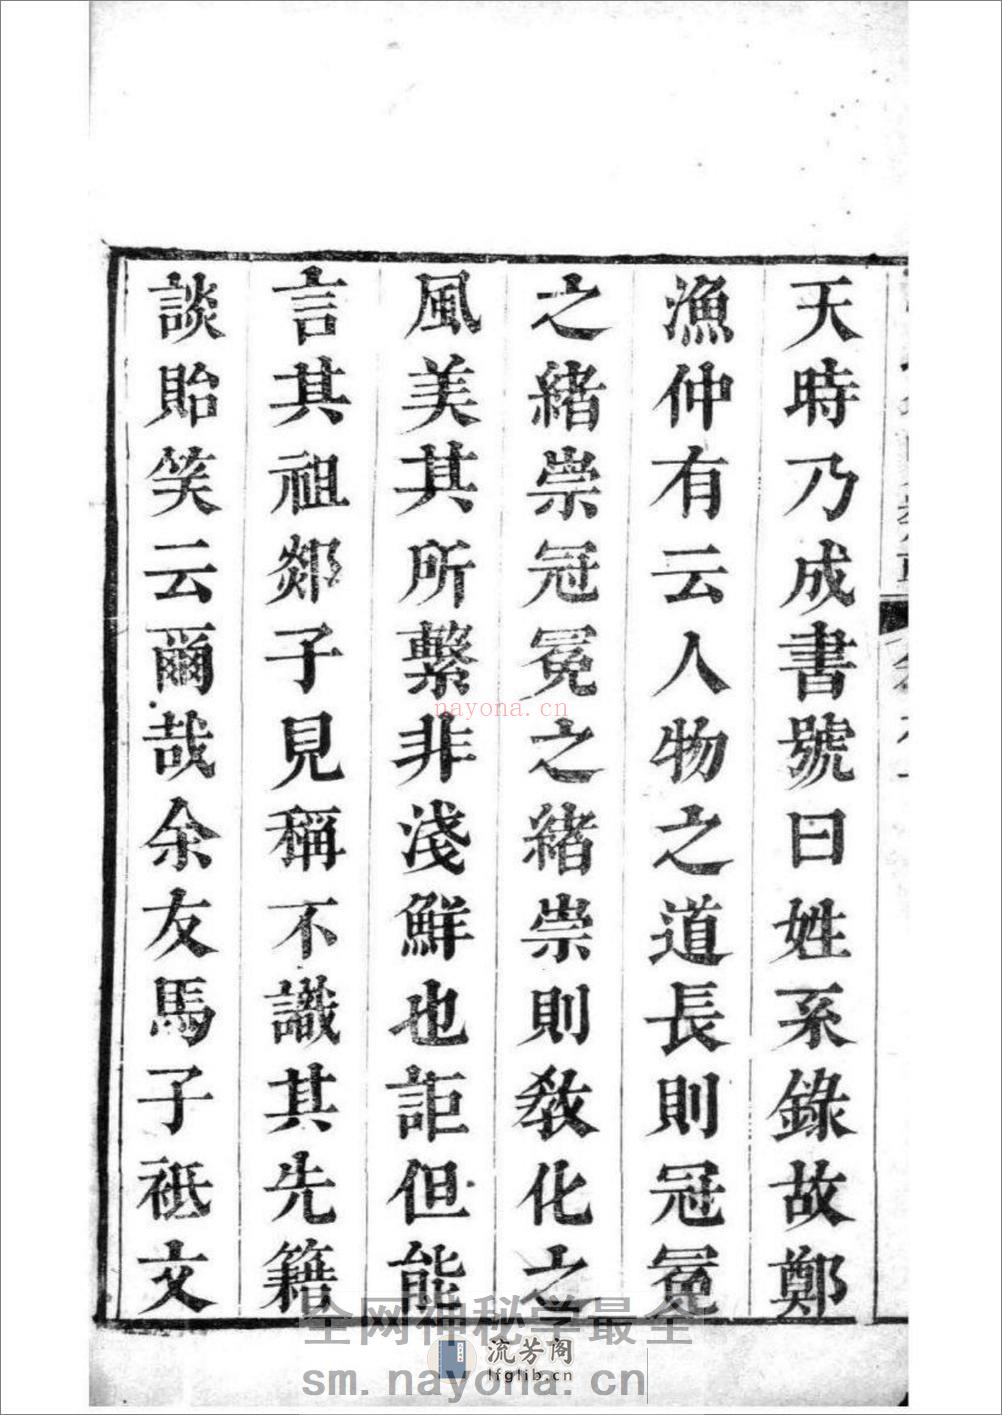 天時乃成書號曰姓系錄故鄭
漁仲有云人物之道長則冠冕
之緒崇冠冕之緒崇則敎化之
風美其所繫非淺鮮也詎但能
言其祖郯子見稱不識其先籍
談貽笑云爾哉余友馬子祗文
nayona.cn
全网神秘学最全
流芳阁
lfglib.cn
sm.nayona.cn